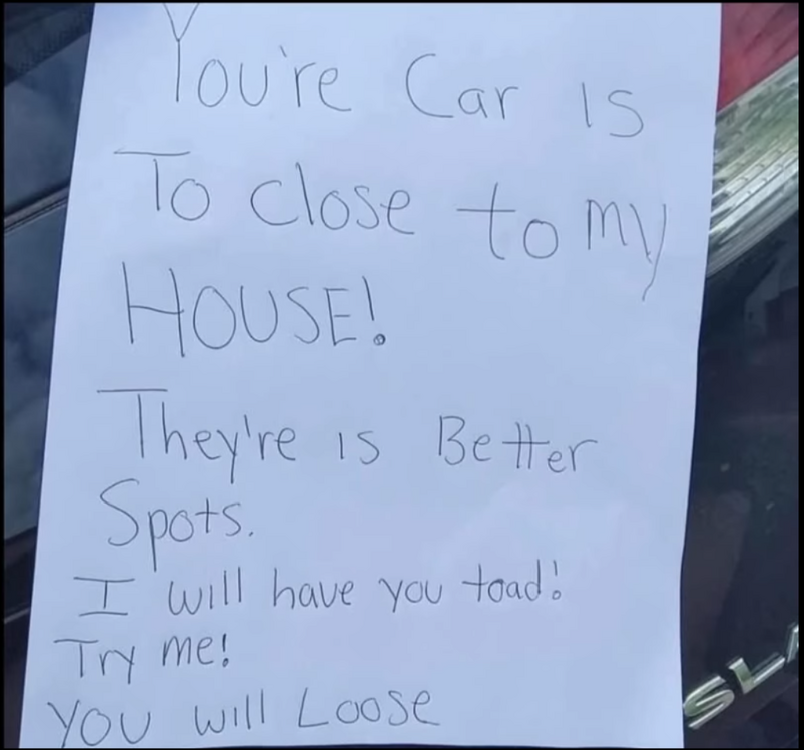 You're Car is
To close to my
HOUSE!
They're is Better
Spots.
I will have you toad!
Try me!
You will Loose
SLA